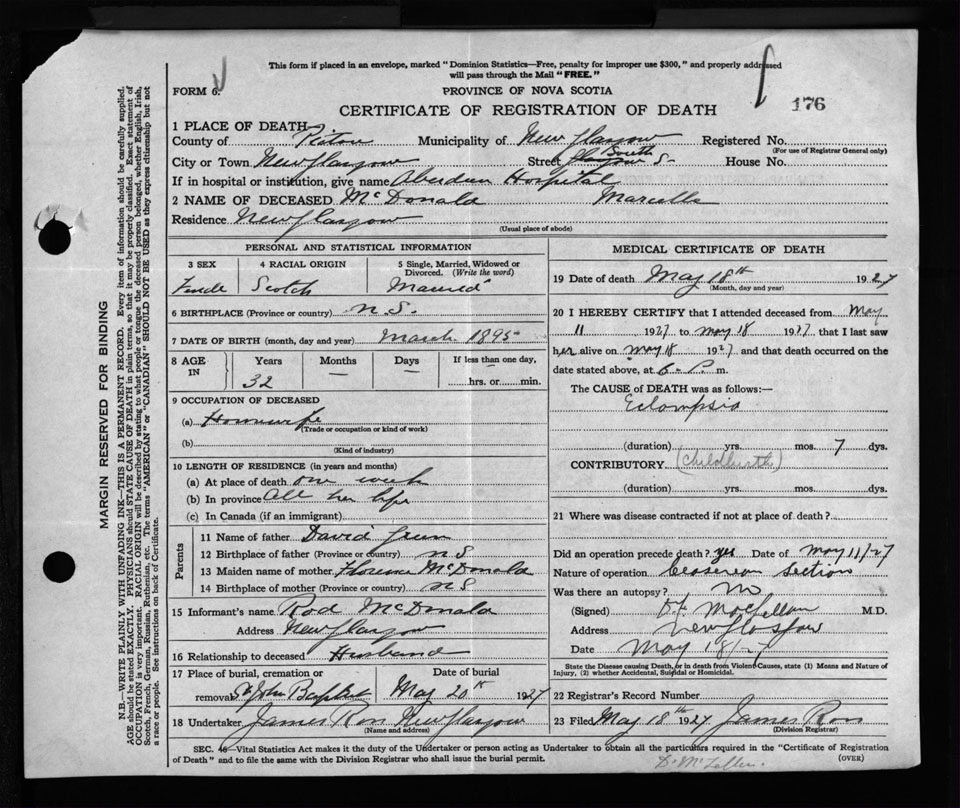 This form if placed in an envelope, marked "Dominion Statistics—Free, penalty for improper use $300," and properly addressed
will pass through the Mail "FREE."
FORM 6.
PROVINCE OF NOVA SCOTIA
CERTIFICATE OF REGISTRATION OF DEATH
176
1 PLACE OF DEATH
County of Pictou Municipality of New Glasgow Registered No.
(For use of Registrar General only)
City or Town New Glasgow Street South House No.
If in hospital or institution, give name Aberdeen Hospital
2 NAME OF DECEASED McDonald Marcella
Residence New Glasgow
(Usual place of abode)
PERSONAL AND STATISTICAL INFORMATION
3 SEX 4 RACIAL ORIGIN 5 Single, Married, Widowed or
Divorced. (Write the word)
Female Scotch Married
6 BIRTHPLACE (Province or country) N.S.
7 DATE OF BIRTH (month, day and year) March 1895
8 AGE IN Years Months Days If less than one day,
32 — — hrs. or min.
9 OCCUPATION OF DECEASED
(a) Housewife
(Trade or occupation or kind of work)
(b)
(Kind of industry)
10 LENGTH OF RESIDENCE (in years and months)
(a) At place of death one week
(b) In province all her life
(c) In Canada (if an immigrant)
Parents
11 Name of father David
12 Birthplace of father (Province or country) N S
13 Maiden name of mother Florence McDonald
14 Birthplace of mother (Province or country) N S
15 Informant's name Rod McDonald
Address New Glasgow
16 Relationship to deceased Husband
17 Place of burial, cremation or Date of burial
removal St John Baptist May 20th 1927
18 Undertaker James Ross New Glasgow
(Name and address)
MEDICAL CERTIFICATE OF DEATH
19 Date of death May 18th 1927
(Month, day and year)
20 I HEREBY CERTIFY that I attended deceased from May
11 1927 to May 18 1927 that I last saw
her alive on May 18 1927 and that death occurred on the
date stated above, at 6 P. m.
The CAUSE of DEATH was as follows:—
Eclampsia
(duration) yrs. mos. 7 dys.
CONTRIBUTORY (Childbirth)
(duration) yrs. mos. dys.
21 Where was disease contracted if not at place of death?
Did an operation precede death? yes Date of May 11/27
Nature of operation Cesarean Section
Was there an autopsy? No
(Signed) MacLellan M.D.
Address New Glasgow
Date May 18/27
State the Disease causing Death, or in death from Violent Causes, state (1) Means and Nature of
Injury, (2) whether Accidental, Suicidal or Homicidal.
22 Registrar's Record Number
23 Filed May 18th 1927 James Ross
(Division Registrar)
SEC. 46—Vital Statistics Act makes it the duty of the Undertaker or person acting as Undertaker to obtain all the particulars required in the "Certificate of Registration
of Death" and to file the same with the Division Registrar who shall issue the burial permit.
(OVER)
Dr McLellan.
MARGIN RESERVED FOR BINDING
N.B.—WRITE PLAINLY WITH UNFADING INK—THIS IS A PERMANENT RECORD. Every item of information should be carefully supplied.
AGE should be stated EXACTLY. PHYSICIANS should STATE CAUSE OF DEATH in plain terms, so that it may be properly classified. Exact statement of
OCCUPATION is very important. RACIAL ORIGIN will be described by stating to what people or tongue the deceased person belonged, whether English, Irish,
Scotch, French, German, Russian, Ruthenian, etc. The terms "AMERICAN" or "CANADIAN" SHOULD NOT BE USED as they express citizenship but not
a race or people. See instructions on back of Certificate.